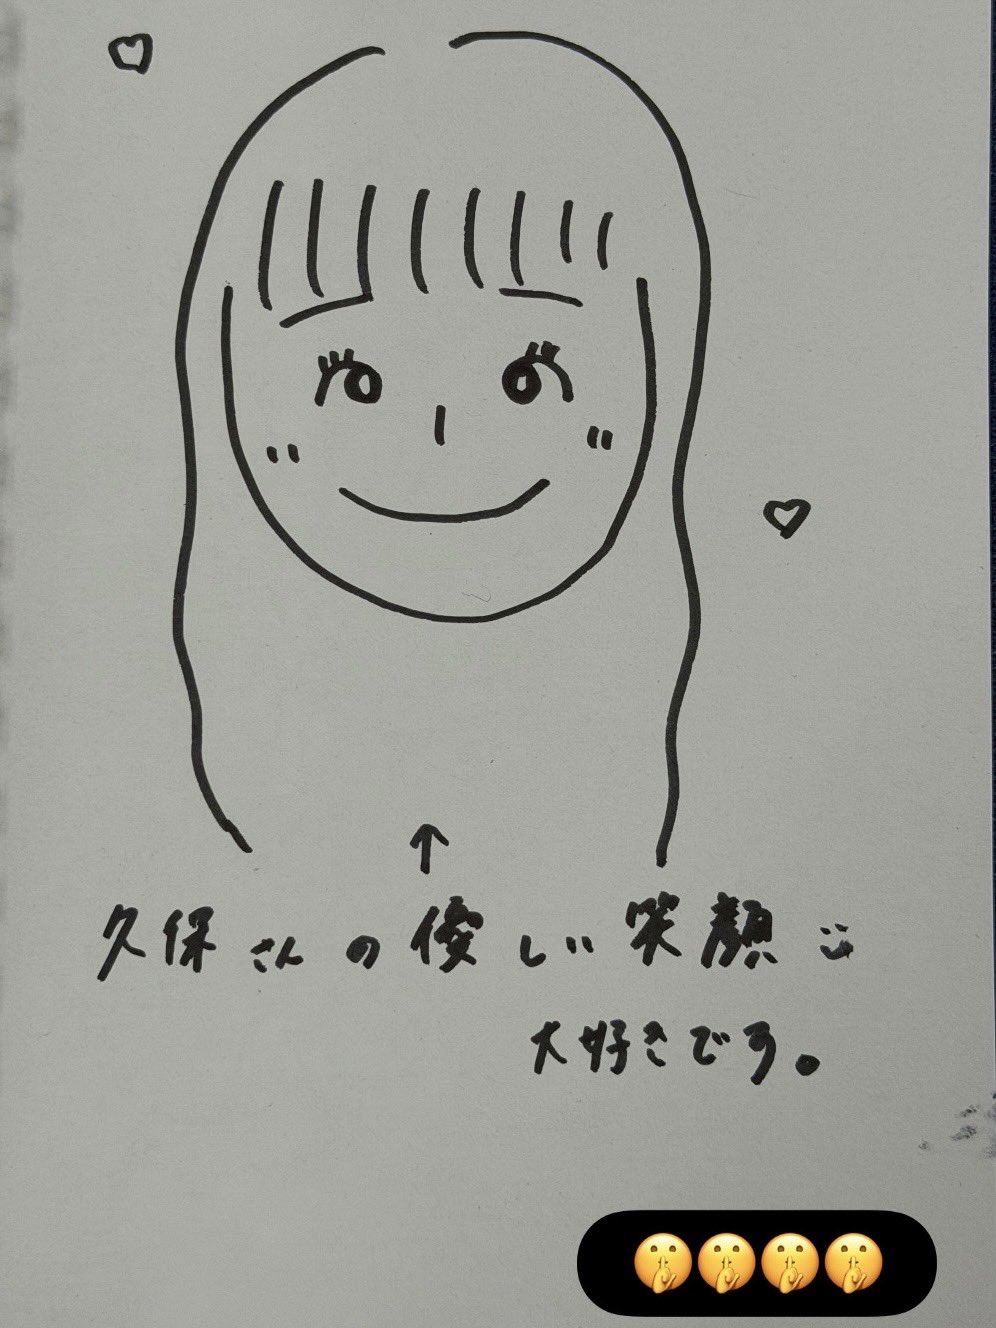 久保さんの優しい笑顔
大好きです。